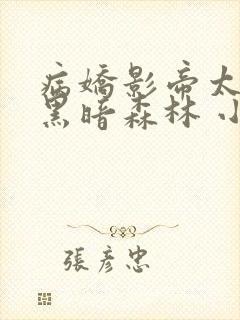 病嬌影帝太
黑暗森林 小
張彥忠